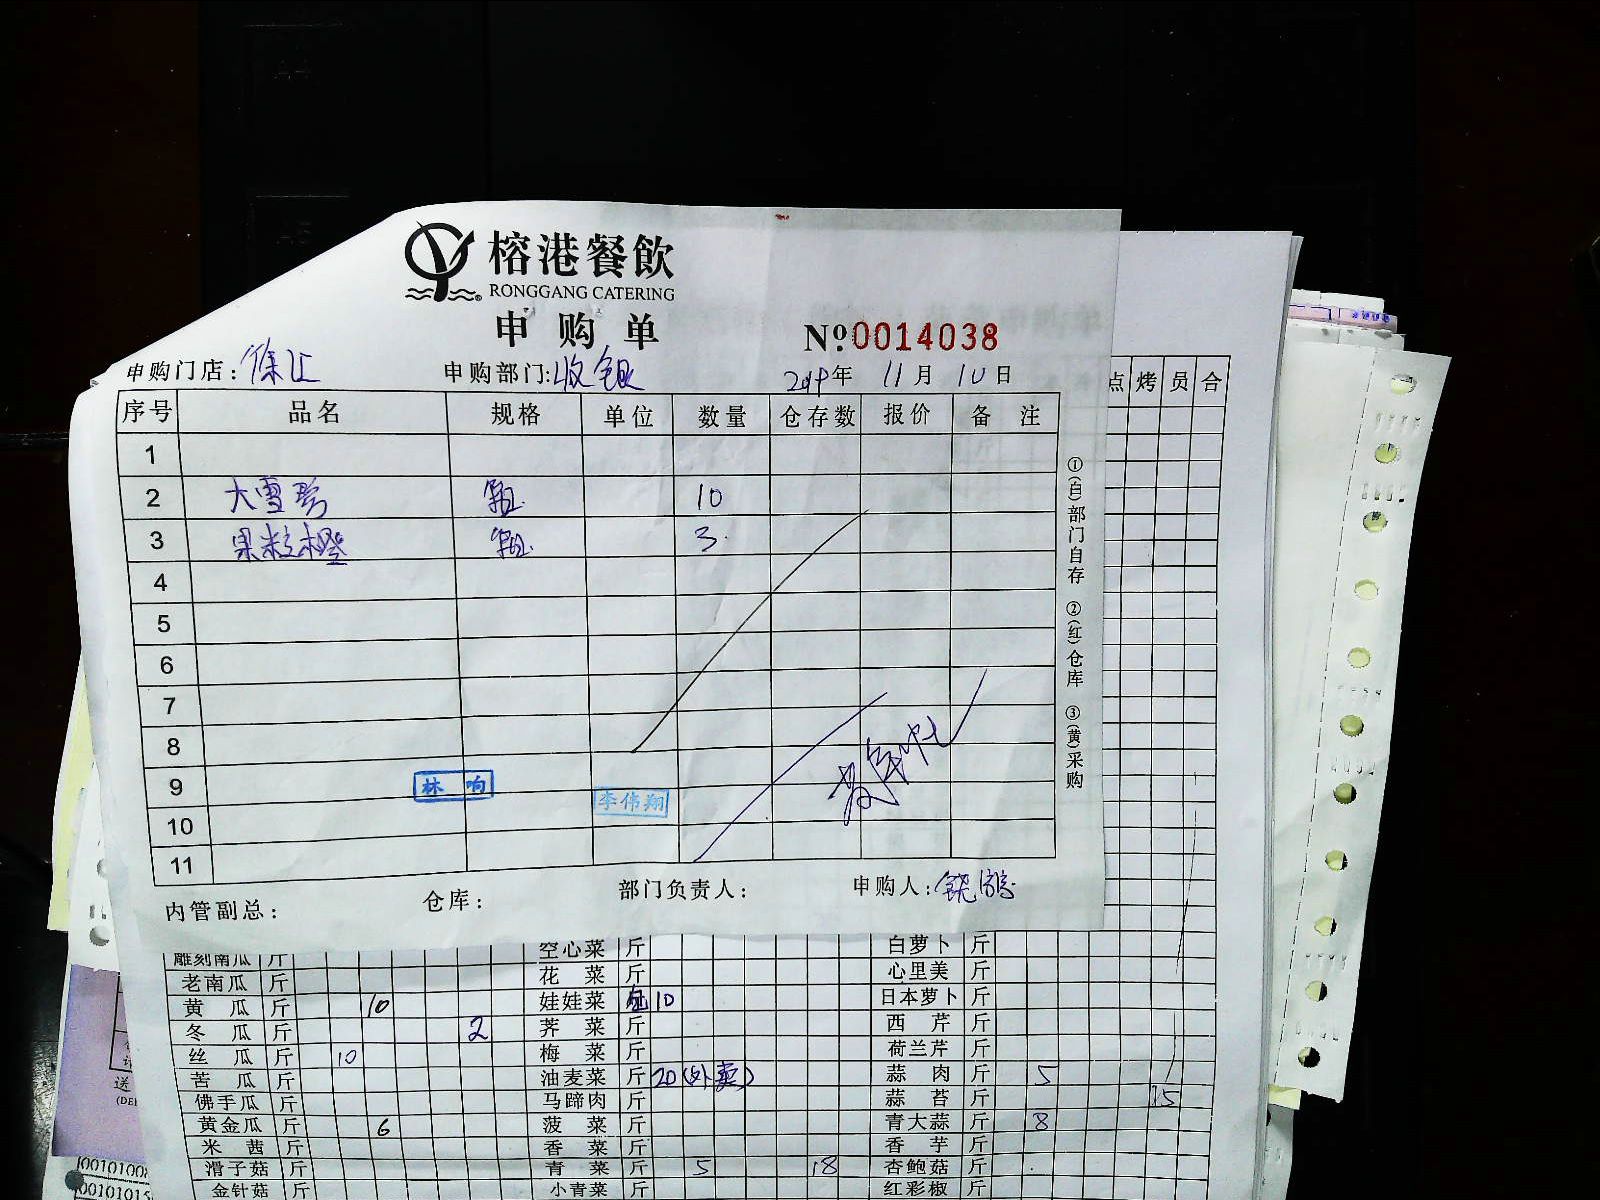 榕港餐飲
RONGGANG CATERING
申购单 Nº0014038
申购门店:徐汇 申购部门:收银 2019年 11月 10日
序号 品名 规格 单位 数量 仓存数 报价 备注
1
2 大雪碧 瓶 10
3 果粒橙 瓶 3
4
5
6
7
8
9
10
11
林响
李伟翔
①(白)部门自存 ②(红)仓库 ③(黄)采购
内管副总: 仓库: 部门负责人: 申购人:
点 烤 员 合
雕刻南瓜 斤 空心菜 斤 白萝卜 斤
老南瓜 斤 花菜 斤 心里美 斤
黄瓜 斤 10 娃娃菜 包 10 日本萝卜 斤
冬瓜 斤 2 荠菜 斤 西芹 斤
丝瓜 斤 10 梅菜 斤 荷兰芹 斤
苦瓜 斤 油麦菜 斤 20(外卖) 蒜肉 斤 5
佛手瓜 斤 马蹄肉 斤 蒜苔 斤 15
黄金瓜 斤 6 菠菜 斤 青大蒜 斤 8
米茜 斤 香菜 斤 香芋 斤
滑子菇 斤 青菜 斤 5 18 杏鲍菇 斤
金针菇 斤 小青菜 斤 红彩椒 斤
送
(DEL